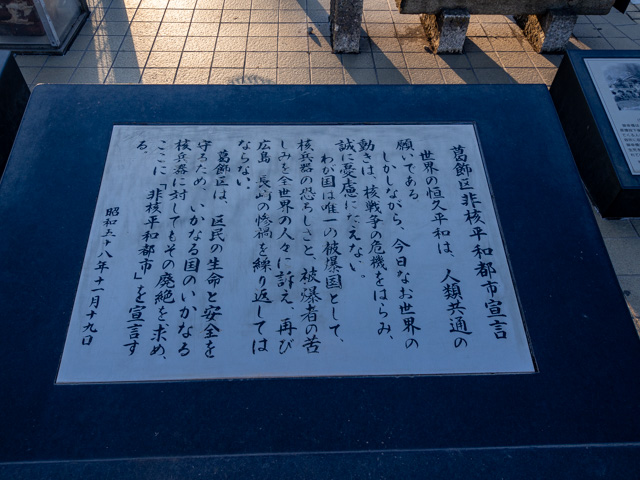 葛飾区非核平和都市宣言
世界の恒久平和は、人類共通の
願いである
しかしながら、今日なお世界の
動きは、核戦争の危機をはらみ、
誠に憂慮にたえない。
わが国は唯一の被爆国として、
核兵器の恐ろしさと、被爆者の苦
しみを全世界の人々に訴え、再び
広島、長崎の惨禍を繰り返しては
ならない。
葛飾区は、区民の生命と安全を
守るため、いかなる国のいかなる
核兵器に対してもその廃絶を求め、
ここに「非核平和都市」を宣言す
る。
昭和五十八年十一月十九日